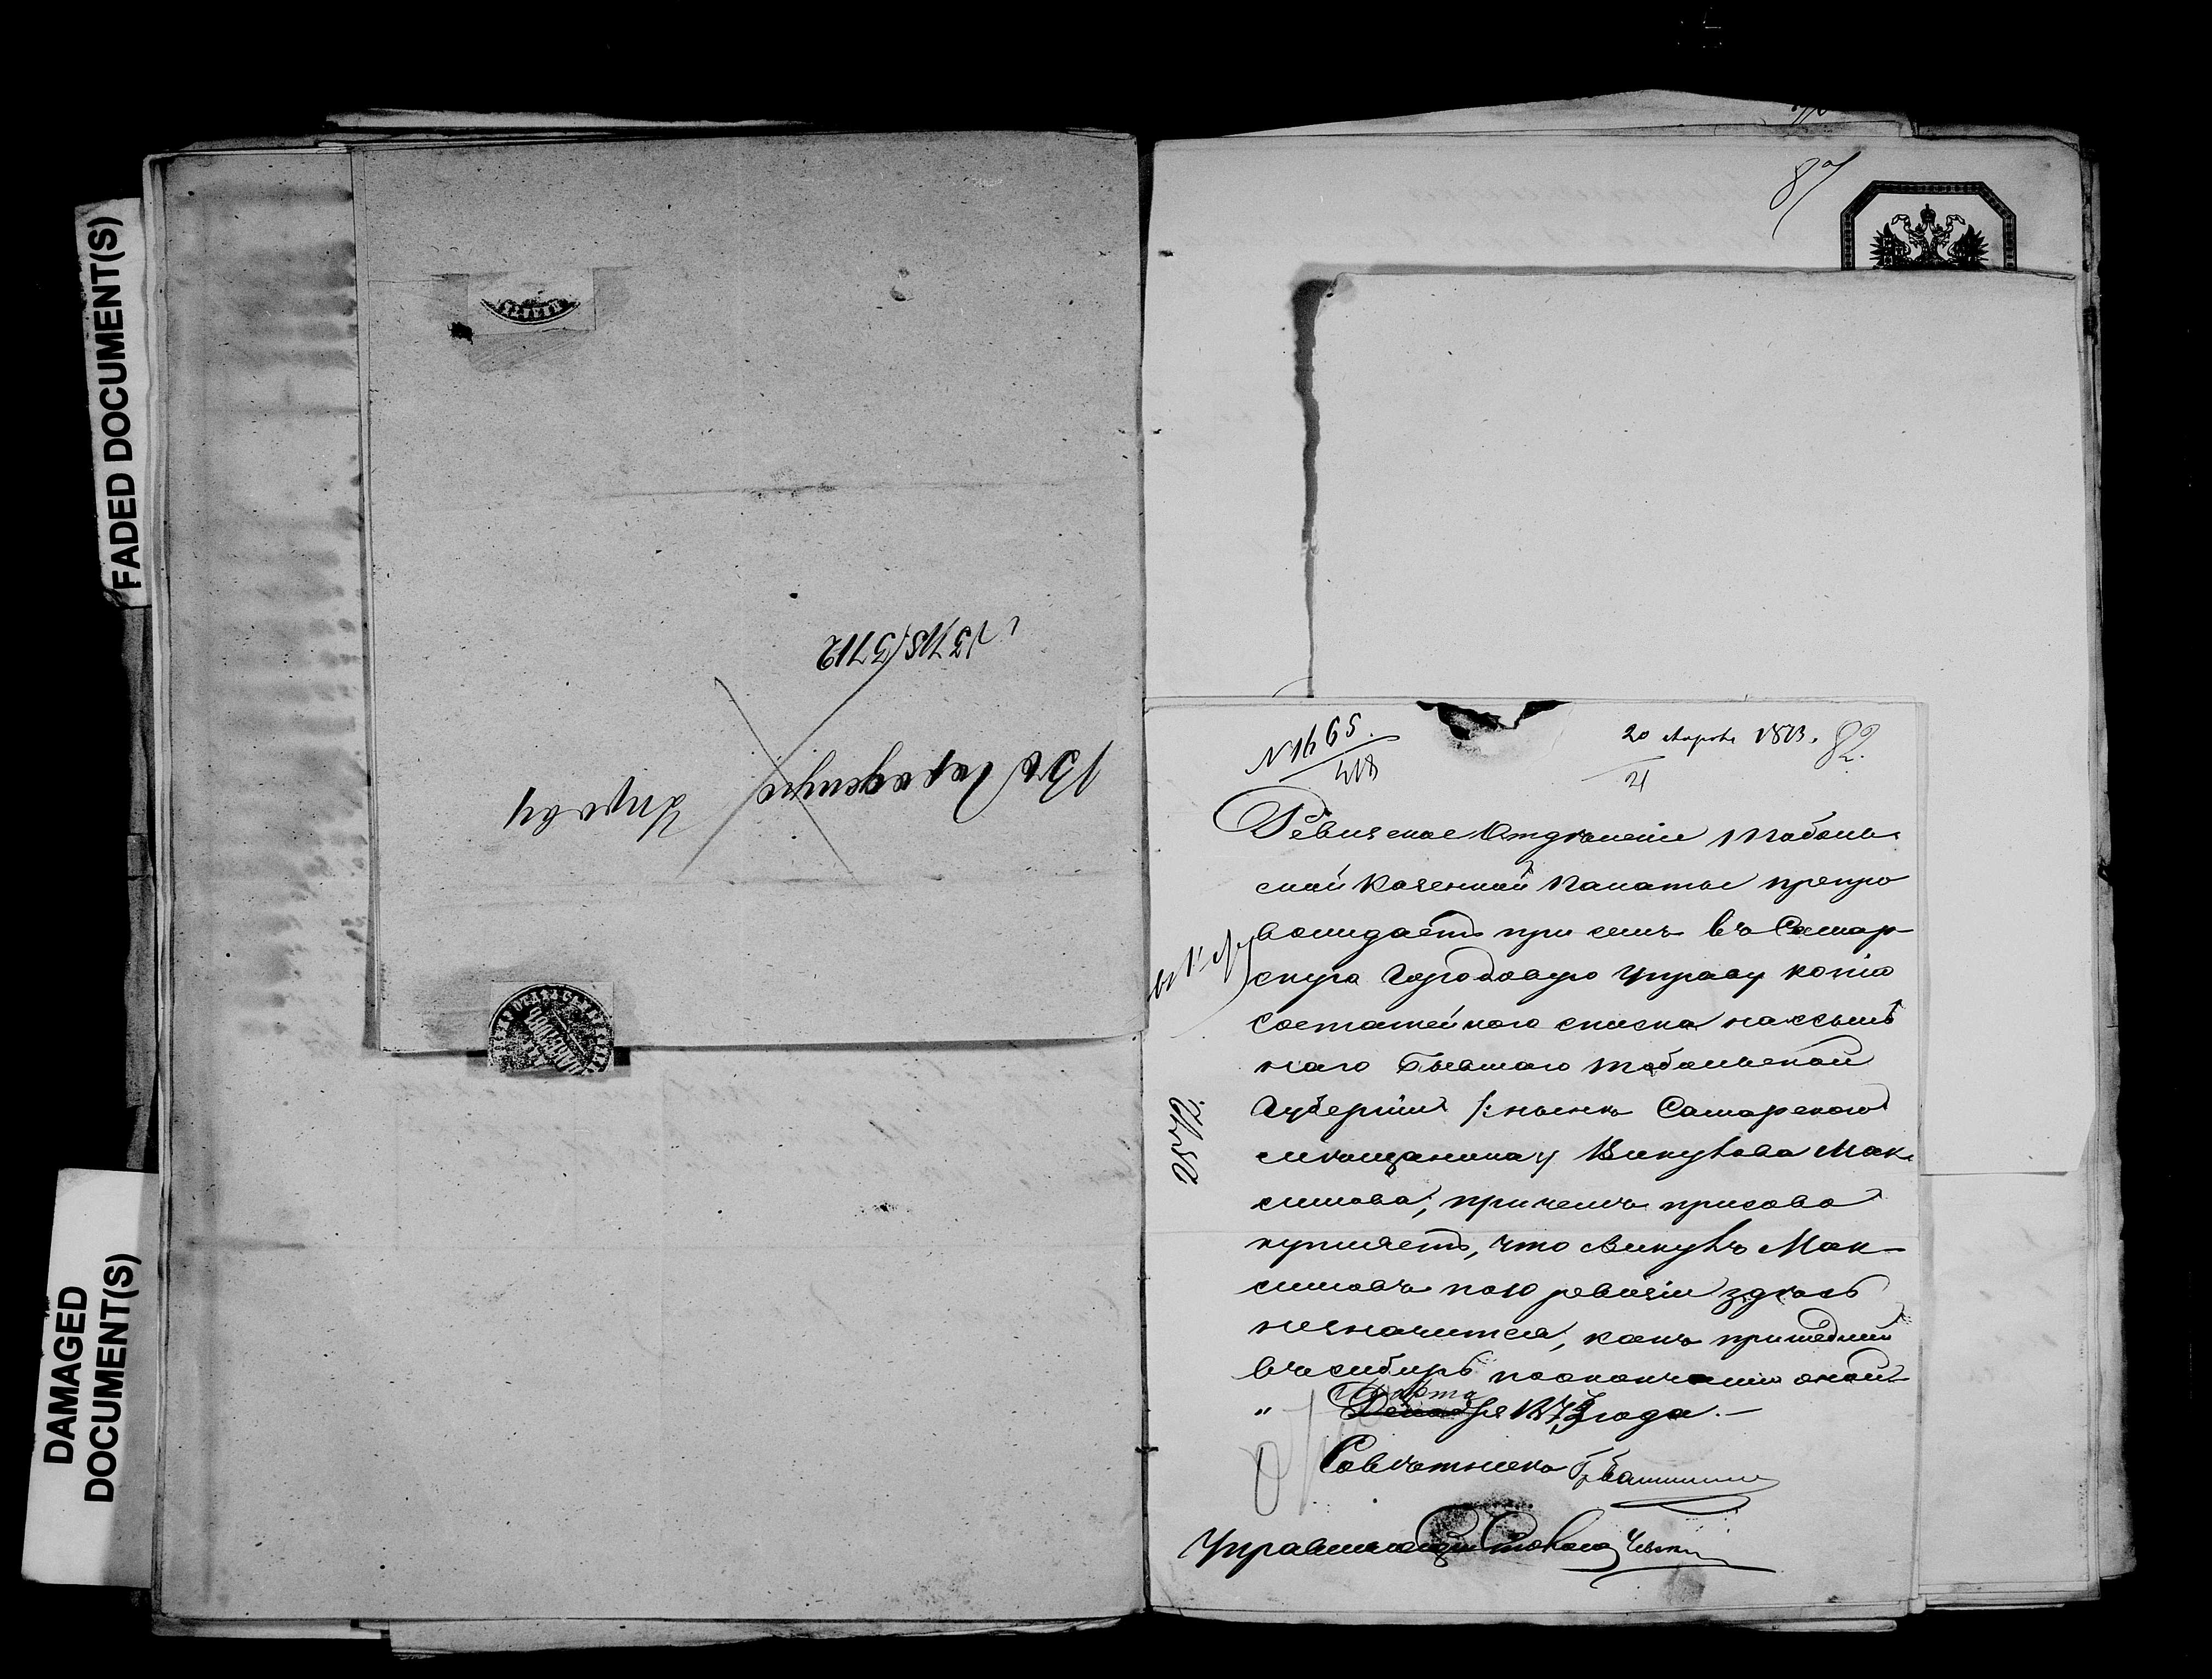 FADED DOCUMENT(S)
DAMAGED
DOCUMENT(S)
Въ Городскую Управу
87
№ 1465.
418
20 Апрѣля 1873.
21
82.
Ревизское Отдѣленіе Тоболь-
ской Казенной Палаты препро
вождаетъ при семъ въ Самар-
скую Городовую Управу копію
Состатейнаго списка на ссыль
наго бывшаго Тобольской
Губерніи /: нынѣ Самарскаго
мѣщанина/ Викулова Мак-
симова, при чемъ присово
купляетъ, что Викулъ Мак-
симовъ по 10 ревизіи здѣсь
незначится, какъ пришедшій
въ сибирь по окончаніи оной
" Марта
Декабря 1873 года. —
Совѣтникъ
Управляющій Столомъ